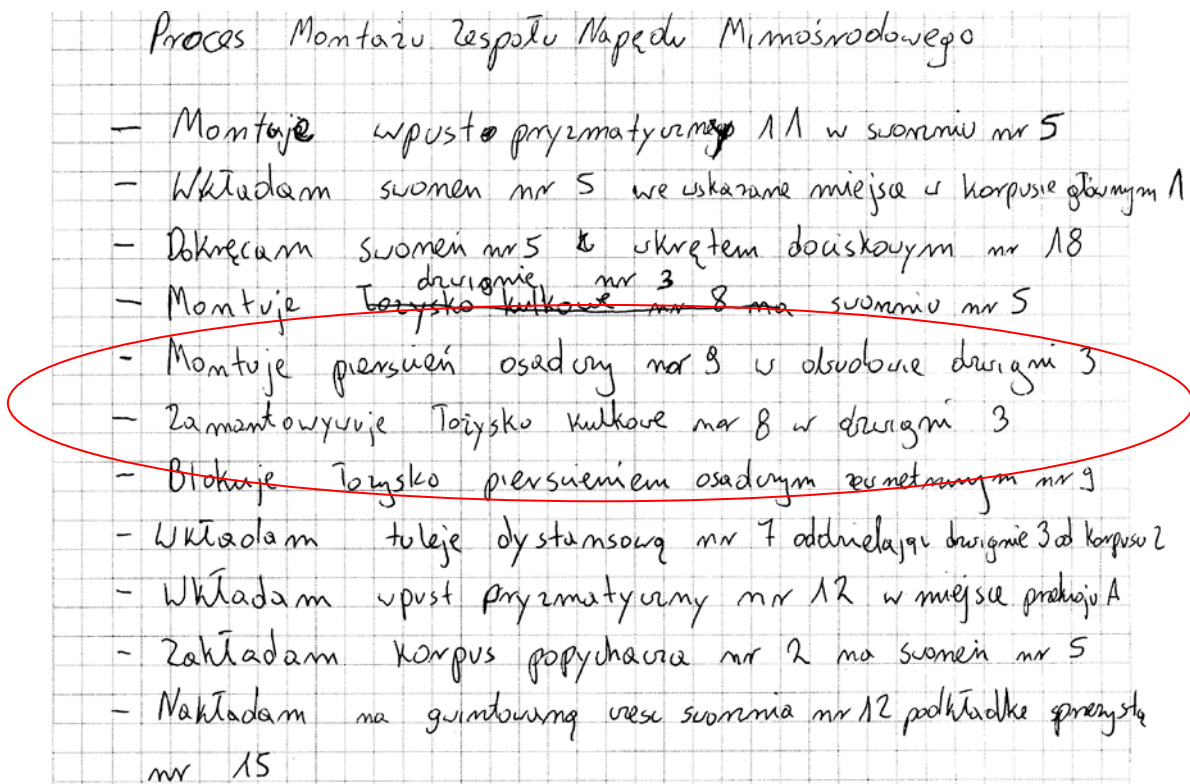 Proces Montażu Zespołu Napędu Mimośrodowego
- Montaje wpust pryzmatyczny 11 w sworzniu nr 5
- Wkładam sworzeń nr 5 we wskazane miejsce w korpusie głównym 1
- Dokręcam sworzeń nr 5 wkrętem dociskowym nr 18
dzwignię nr 3
- Montuje łożysko kulkowe nr 8 na sworzniu nr 5
- Montuje pierscień osadczy nr 9 w obudowie dzwigni 3
- Zamontowywuje łożysko kulkowe nr 8 w dzwigni 3
- Blokuje łozysko pierscieniem osadczym zewnetrznym nr 9
- Wkładam tuleje dystansową nr 7 oddzielając dzwignie 3 od korpusu 2
- Wkładam wpust pryzmatyczny nr 12 w miejsce przekroju A
- Zakładam korpus popychacza nr 2 na sworzeń nr 5
- Nakładam na gwintowaną czesc sworznia nr 12 podkładke sprezystą
nr 15